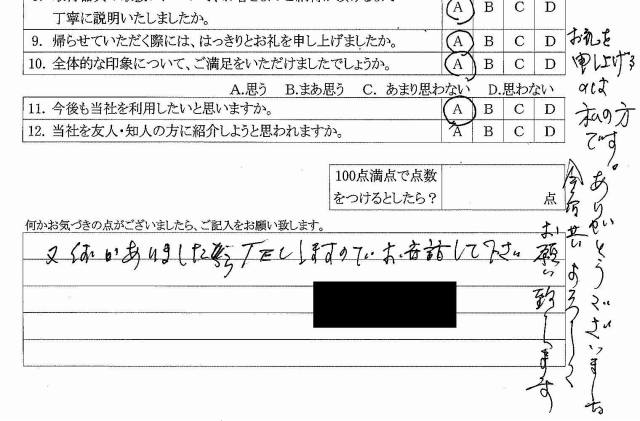 丁寧に説明いたしましたか。 A B C D
9. 帰らせていただく際には、はっきりとお礼を申し上げましたか。 A B C D
10. 全体的な印象について、ご満足をいただけましたでしょうか。 A B C D
A.思う B.まあ思う C. あまり思わない D.思わない
11. 今後も当社を利用したいと思いますか。 A B C D
12. 当社を友人・知人の方に紹介しようと思われますか。 A B C D
100点満点で点数
をつけるとしたら？ 点
何かお気づきの点がございましたら、ご記入をお願い致します。
又何かありました TELしますので 話して下さい
お礼を
申し上げる
のは
私の方
です。
ありがとうございました
今後共よろしく
お願い致します